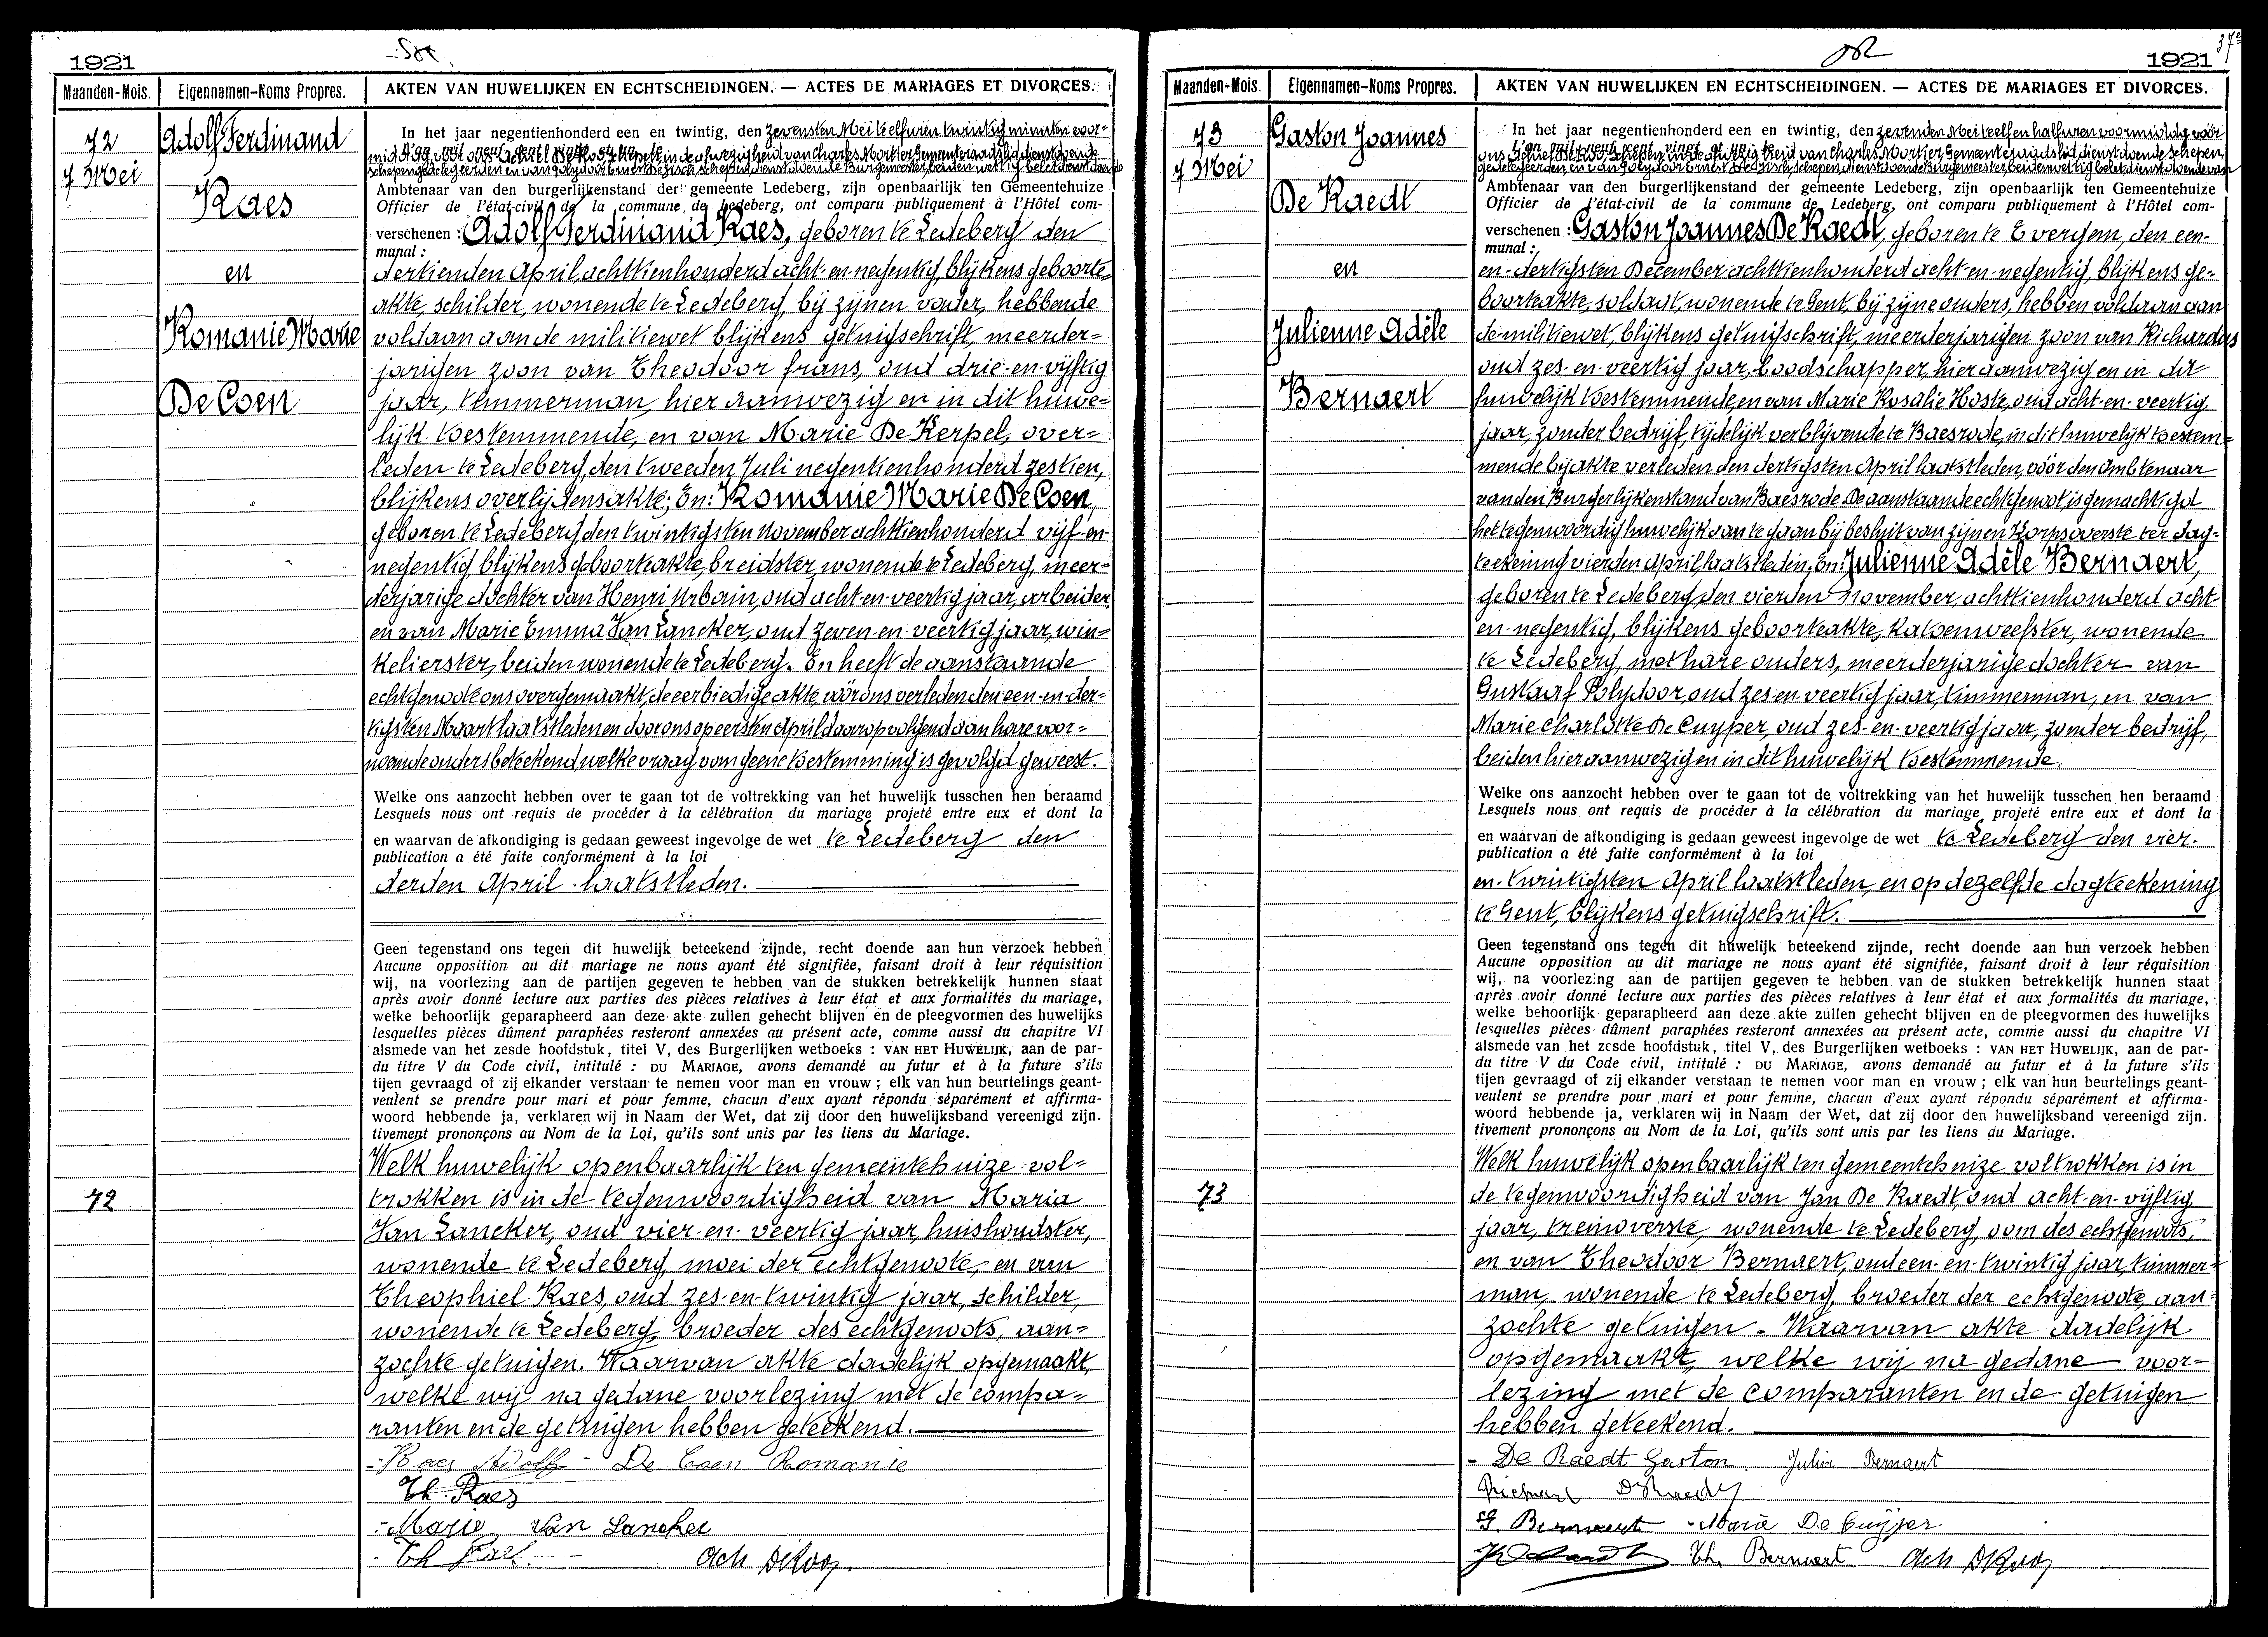 1921
Maanden-Mois. Eigennamen-Noms Propres. AKTEN VAN HUWELIJKEN EN ECHTSCHEIDINGEN. — ACTES DE MARIAGES ET DIVORCES.
72
7 Mei
Adolf Ferdinand
Raes
en
Romanie Marie
De Coen
72
In het jaar negentienhonderd een en twintig, den zevensten Mei te elf uren twintig minuten voor-
L'an mil neuf cent vingt et un, le
middag voor ons Achiel De Koo, schepene, in de afwezigheid van Charles Mortier Gemeenteraadslid, dienstdoende
schepen gedelegeerden en van Polydoor Ernest De Bisch, schepen, dienstdoende Burgemeester, beiden wettig belet, dienstdoende
Ambtenaar van den burgerlijkenstand der gemeente Ledeberg, zijn openbaarlijk ten Gemeentehuize
Officier de l'état-civil de la commune de Ledeberg, ont comparu publiquement à l'Hôtel com-
verschenen : Adolf Ferdinand Raes, geboren te Ledeberg den
munal :
dertienden April, achttienhonderd acht-en-negentig, blijkens geboorte-
akte, schilder, wonende te Ledeberg, bij zijnen vader, hebbende
voldaan aan de militiewet blijkens getuigschrift, meerder-
jarigen zoon van Theodoor Frans, oud drie-en-vijftig
jaar, timmerman, hier aanwezig en in dit huwe-
lijk toestemmende, en van Marie De Kerpel, over-
leden te Ledeberg, den tweeden Juli negentienhonderd zestien,
blijkens overlijdensakte; En: Romanie Marie De Coen,
geboren te Ledeberg den twintigsten November achttienhonderd vijf-en-
negentig, blijkens geboorteakte, breidster, wonende te Ledeberg, meer-
derjarige dochter van Henri Urbain, oud acht-en-veertig jaar, arbeider,
en van Marie Emma Van Lancker, oud zeven-en-veertig jaar, win-
kelierster, beiden wonende te Ledeberg. En heeft de aanstaande
echtgenoote ons overgemaakt, de eerbiedige akte, vóór ons verleden den een-en-der-
tigsten Maart laatstleden en door ons op eersten April daaropvolgend aan hare voor-
noemde ouders beteekend, welke vraag van geene toestemming is gevolgd geweest.
Welke ons aanzocht hebben over te gaan tot de voltrekking van het huwelijk tusschen hen beraamd
Lesquels nous ont requis de procéder à la célébration du mariage projeté entre eux et dont la
en waarvan de afkondiging is gedaan geweest ingevolge de wet te Ledeberg den
publication a été faite conformément à la loi
derden April laatstleden.
Geen tegenstand ons tegen dit huwelijk beteekend zijnde, recht doende aan hun verzoek hebben
Aucune opposition au dit mariage ne nous ayant été signifiée, faisant droit à leur réquisition
wij, na voorlezing aan de partijen gegeven te hebben van de stukken betrekkelijk hunnen staat
après avoir donné lecture aux parties des pièces relatives à leur état et aux formalités du mariage,
welke behoorlijk geparapheerd aan deze akte zullen gehecht blijven en de pleegvormen des huwelijks
lesquelles pièces dûment paraphées resteront annexées au présent acte, comme aussi du chapitre VI
alsmede van het zesde hoofdstuk, titel V, des Burgerlijken wetboeks : VAN HET HUWELIJK, aan de par-
du titre V du Code civil, intitulé : DU MARIAGE, avons demandé au futur et à la future s'ils
tijen gevraagd of zij elkander verstaan te nemen voor man en vrouw ; elk van hun beurtelings geant-
veulent se prendre pour mari et pour femme, chacun d'eux ayant répondu séparément et affirma-
woord hebbende ja, verklaren wij in Naam der Wet, dat zij door den huwelijksband vereenigd zijn.
tivement prononçons au Nom de la Loi, qu'ils sont unis par les liens du Mariage.
Welk huwelijk openbaarlijk ten gemeentehuize vol-
trokken is in de tegenwoordigheid van Maria
Van Lancker, oud vier-en-veertig jaar, huishoudster,
wonende te Ledeberg, moei der echtgenoote, en van
Theophiel Raes, oud zes-en-twintig jaar, schilder,
wonende te Ledeberg, broeder des echtgenoots, aan-
zochte getuigen. Waarvan akte dadelijk opgemaakt,
welke wij na gedane voorlezing met de compa-
ranten en de getuigen hebben geteekend.
- Raes Adolf - De Coen Romanie
Th. Raes
- Marie Van Lancker
- Th Raes - Ach DKoo
1921
37e
Maanden-Mois. Eigennamen-Noms Propres. AKTEN VAN HUWELIJKEN EN ECHTSCHEIDINGEN. — ACTES DE MARIAGES ET DIVORCES.
73
7 Mei
Gaston Joannes
De Raedt
en
Julienne Adèle
Bernaert
73
In het jaar negentienhonderd een en twintig, den zevenden Mei te elf en half uren voormiddag vóór
L'an mil neuf cent vingt et un, le
ons Achiel De Koo, schepen, in de afwezigheid van Charles Mortier, Gemeenteraadslid, dienstdoende schepen,
gedelegeerden, en van Polydoor Ernest De Bisch, schepen, dienstdoende Burgemeester, beiden wettig belet, dienstdoende van
Ambtenaar van den burgerlijkenstand der gemeente Ledeberg, zijn openbaarlijk ten Gemeentehuize
Officier de l'état-civil de la commune de Ledeberg, ont comparu publiquement à l'Hôtel com-
verschenen : Gaston Joannes De Raedt, geboren te Evergem, den een-
munal :
en-dertigsten December achttienhonderd acht-en-negentig, blijkens ge-
boorteakte, soldaat, wonende te Gent, bij zijne ouders, hebben voldaan aan
de militiewet, blijkens getuigschrift, meerderjarigen zoon van Richardus
oud zes-en-veertig jaar, boodschapper, hier aanwezig en in dit
huwelijk toestemmende, en van Marie Rosalie Hoste, oud acht-en-veertig
jaar, zonder bedrijf, tijdelijk verblijvende te Baesrode, in dit huwelijk toestem-
mende bij akte verleden den dertigsten April laatstleden, vóór den Ambtenaar
van den Burgerlijkenstand van Baesrode. De aanstaande echtgenoot is gemachtigd
het tegenwoordig huwelijk aan te gaan bij besluit van zijnen Korpsoverste ter dag-
teekening vierden April laatstleden. En: Julienne Adèle Bernaert,
geboren te Ledeberg, den vierden November, achttienhonderd acht-
en-negentig, blijkens geboorteakte, katoenweefster, wonende
te Ledeberg, met hare ouders, meerderjarige dochter van
Gustaaf Polydoor, oud zes-en-veertig jaar, timmerman, en van
Marie Charlotte De Cuyper, oud zes-en-veertig jaar, zonder bedrijf,
beiden hier aanwezig en in dit huwelijk toestemmende.
Welke ons aanzocht hebben over te gaan tot de voltrekking van het huwelijk tusschen hen beraamd
Lesquels nous ont requis de procéder à la célébration du mariage projeté entre eux et dont la
en waarvan de afkondiging is gedaan geweest ingevolge de wet te Ledeberg den vier-
publication a été faite conformément à la loi
en-twintigsten April laatstleden, en op dezelfde dagteekening
te Gent, blijkens getuigschrift.
Geen tegenstand ons tegen dit huwelijk beteekend zijnde, recht doende aan hun verzoek hebben
Aucune opposition au dit mariage ne nous ayant été signifiée, faisant droit à leur réquisition
wij, na voorlezing aan de partijen gegeven te hebben van de stukken betrekkelijk hunnen staat
après avoir donné lecture aux parties des pièces relatives à leur état et aux formalités du mariage,
welke behoorlijk geparapheerd aan deze akte zullen gehecht blijven en de pleegvormen des huwelijks
lesquelles pièces dûment paraphées resteront annexées au présent acte, comme aussi du chapitre VI
alsmede van het zesde hoofdstuk, titel V, des Burgerlijken wetboeks : VAN HET HUWELIJK, aan de par-
du titre V du Code civil, intitulé : DU MARIAGE, avons demandé au futur et à la future s'ils
tijen gevraagd of zij elkander verstaan te nemen voor man en vrouw ; elk van hun beurtelings geant-
veulent se prendre pour mari et pour femme, chacun d'eux ayant répondu séparément et affirma-
woord hebbende ja, verklaren wij in Naam der Wet, dat zij door den huwelijksband vereenigd zijn.
tivement prononçons au Nom de la Loi, qu'ils sont unis par les liens du Mariage.
Welk huwelijk openbaarlijk ten gemeentehuize voltrokken is in
de tegenwoordigheid van Jan De Raedt, oud acht-en-vijftig
jaar, treinoverste, wonende te Ledeberg, oom des echtgenoots,
en van Theodoor Bernaert, oud een-en-twintig jaar, timmer-
man, wonende te Ledeberg, broeder der echtgenoote, aan-
zochte getuigen. Waarvan akte dadelijk
opgemaakt, welke wij na gedane voor-
lezing met de comparanten en de getuigen
hebben geteekend.
- De Raedt Gaston Julia Bernaert
Richard DRaedt
G. Bernaert - Maria De Cuyper
Th. Bernaert Ach DKoo